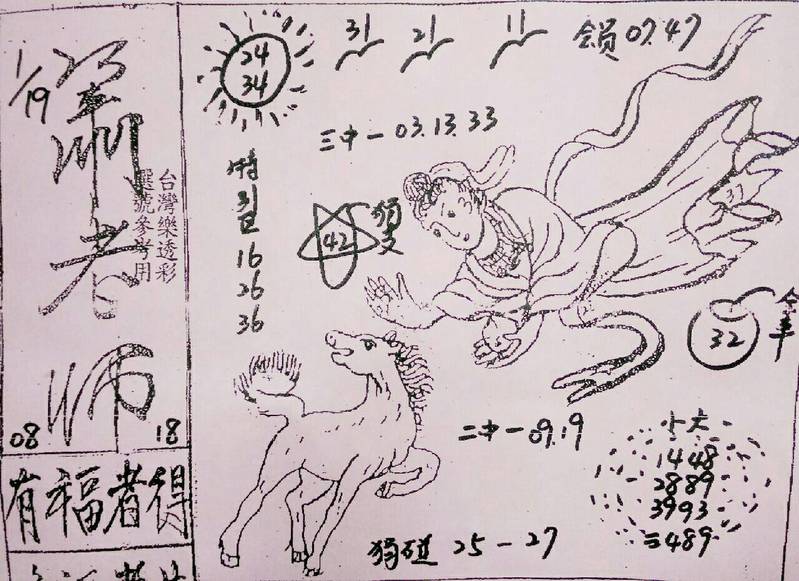 1/19
蕭老师
台灣樂透彩
選號參考用
08 18
有福者得
24
34
31 21 11
会员 07.47
三中一 03.13.33
特
16
26
36
42
独支
32
全车
二中一 09.19
1448
2889
3993
=489
独碰 25-27